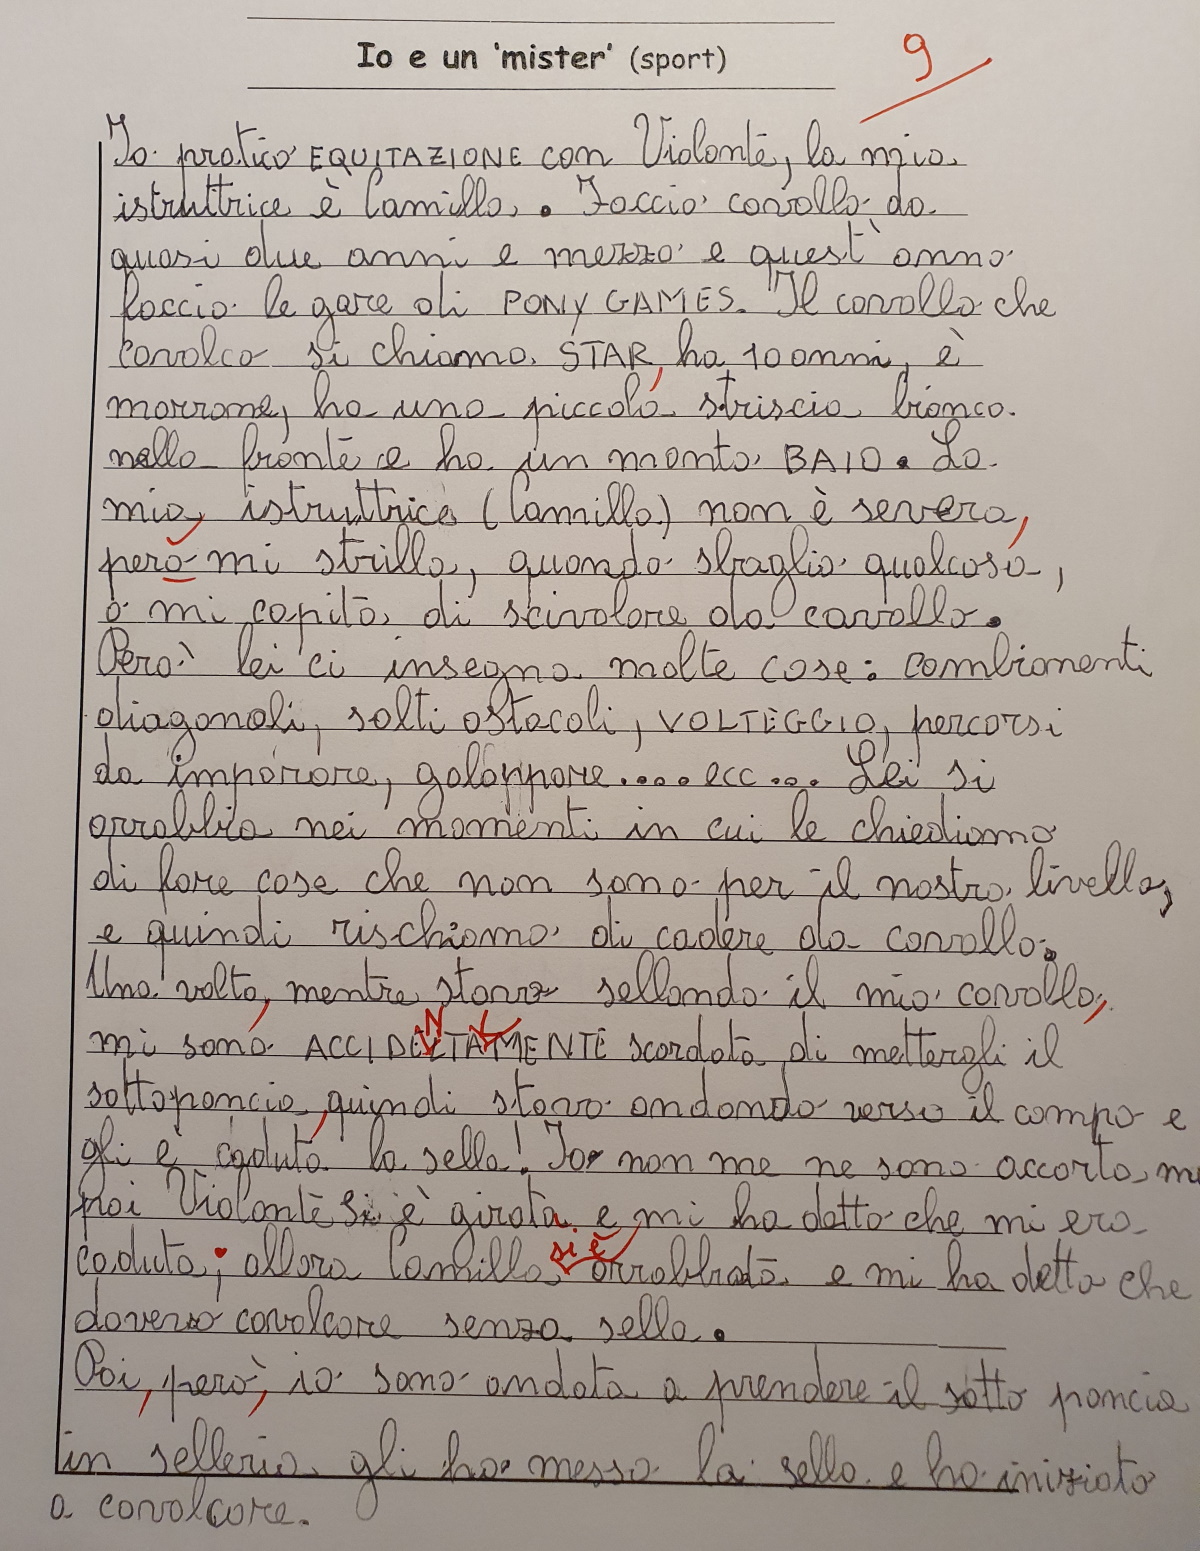 Io e un 'mister' (sport)
9
Io pratico EQUITAZIONE con Violante, la mia
istruttrice è Camilla. Faccio cavallo da
quasi due anni e mezzo e quest'anno
faccio le gare di PONY GAMES. Il cavallo che
cavalco si chiama STAR, ha 10 anni, è
marrone, ha una piccola striscia bianca
nella fronte e ha un manto BAIO. La
mia, istruttrice (Camilla) non è severa,
però mi strilla, quando sbaglio qualcosa,
o mi capita di scivolare da cavallo.
Però lei ci insegna molte cose: cambiamenti
diagonali, salti ostacoli, VOLTEGGIO, percorsi
da imparare, galoppare.... ecc... Lei si
arrabbia nei momenti in cui le chiediamo
di fare cose che non sono per il nostro livello,
e quindi rischiamo di cadere da cavallo.
Una volta, mentre stavo sellando il mio cavallo,
mi sono ACCIDENTALMENTE scordata di mettergli il
sottopancia, quindi stavo andando verso il campo e
gli è caduta la sella! Io non me ne sono accorta, ma
poi Violante si è girata e mi ha detto che mi era
caduta; allora Camilla si è arrabbiata e mi ha detto che
dovevo cavalcare senza sella.
Poi, però, io sono andata a prendere il sotto pancia
in selleria gli ho messo la sella e ho iniziato
a cavalcare.